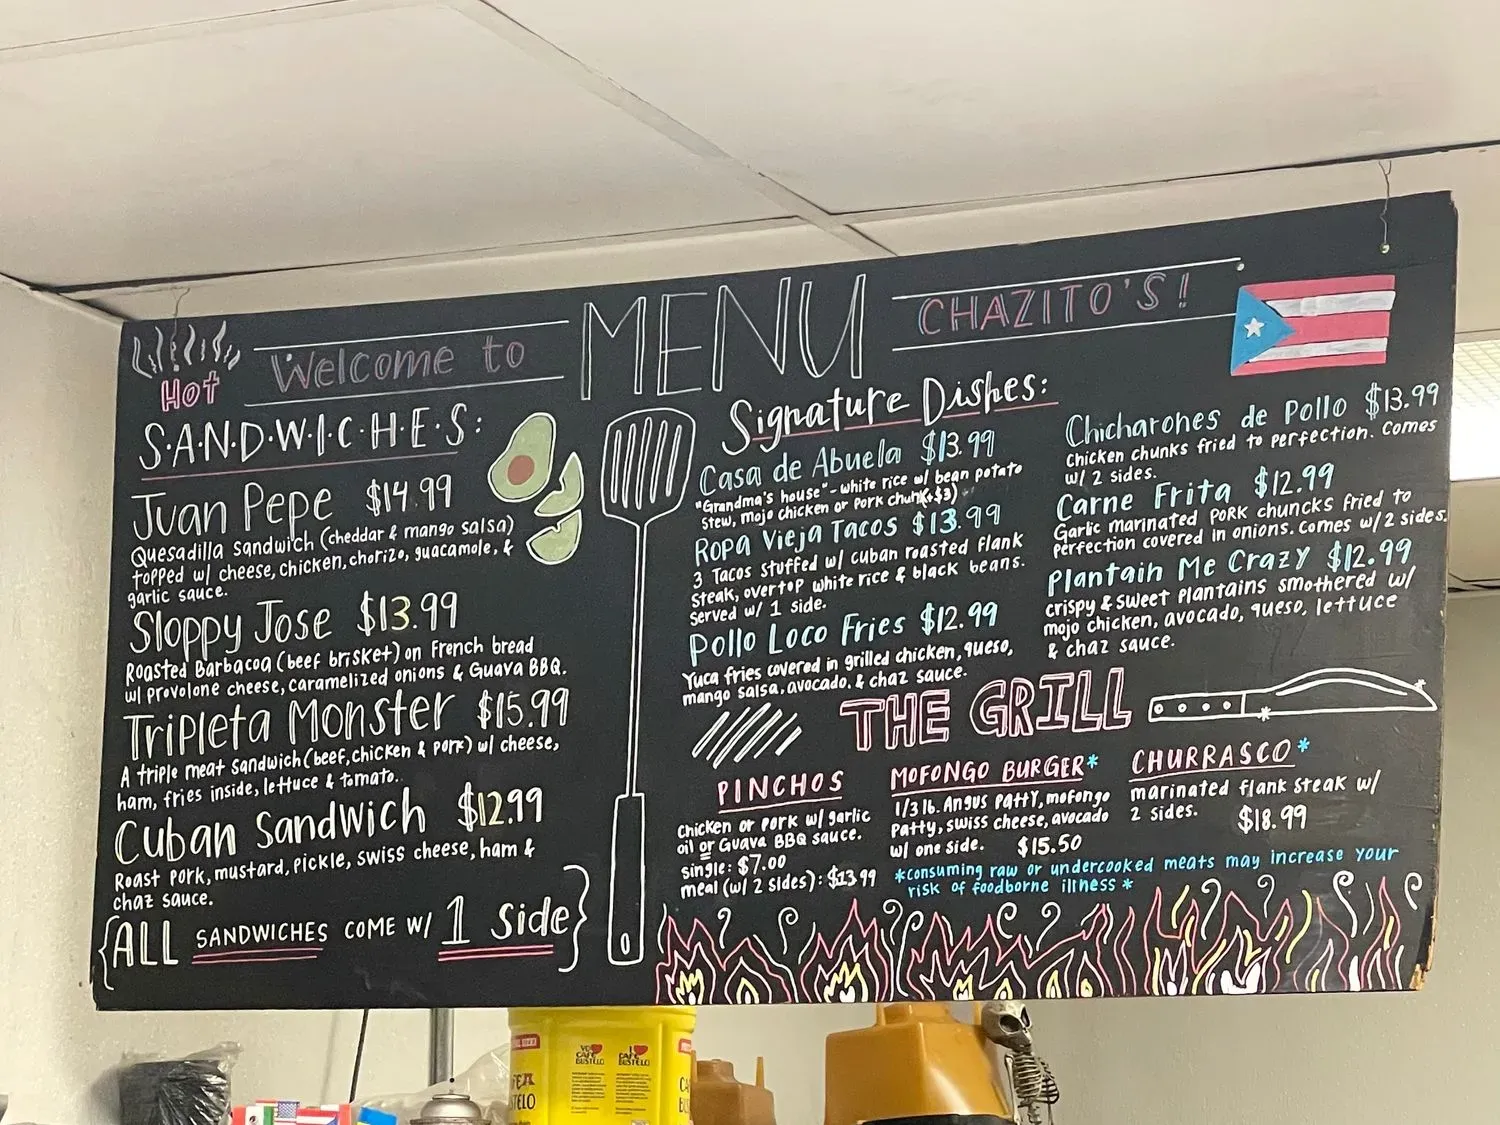 Welcome to
MENU
CHAZITO'S!
HOT
S·A·N·D·W·I·C·H·E·S:
Juan Pepe $14.99
Quesadilla sandwich (cheddar & mango salsa)
topped w/ cheese, chicken, chorizo, guacamole, &
garlic sauce.
Sloppy Jose $13.99
Roasted Barbacoa (beef brisket) on French bread
w/ provolone cheese, caramelized onions & Guava BBQ.
Tripleta Monster $15.99
A triple meat sandwich (beef, chicken & pork) w/ cheese,
ham, fries inside, lettuce & tomato.
Cuban Sandwich $12.99
Roast pork, mustard, pickle, swiss cheese, ham &
chaz sauce.
{ALL SANDWICHES COME W/ 1 Side}
Signature Dishes:
Casa de Abuela $13.99
"Grandma's house" - white rice w/ bean potato
stew, mojo chicken or pork chunk(+$3)
Ropa Vieja Tacos $13.99
3 Tacos stuffed w/ cuban roasted flank
steak, overtop white rice & black beans.
served w/ 1 side.
Pollo Loco Fries $12.99
Yuca fries covered in grilled chicken, queso,
mango salsa, avocado, & chaz sauce.
Chicharones de Pollo $13.99
Chicken chunks fried to perfection. Comes
w/ 2 sides.
Carne Frita $12.99
Garlic marinated pork chuncks fried to
perfection covered in onions. Comes w/ 2 sides.
Plantain Me Crazy $12.99
crispy & sweet plantains smothered w/
mojo chicken, avocado, queso, lettuce
& chaz sauce.
THE GRILL
PINCHOS
Chicken or pork w/ garlic
oil or Guava BBQ sauce.
single: $7.00
meal (w/ 2 sides): $13.99
MOFONGO BURGER*
1/3 lb. Angus patty, mofongo
patty, swiss cheese, avocado
w/ one side. $15.50
CHURRASCO*
marinated flank steak w/
2 sides. $18.99
*consuming raw or undercooked meats may increase your
risk of foodborne illness*
YO CAFÉ BUSTELO
I CAFÉ BUSTELO